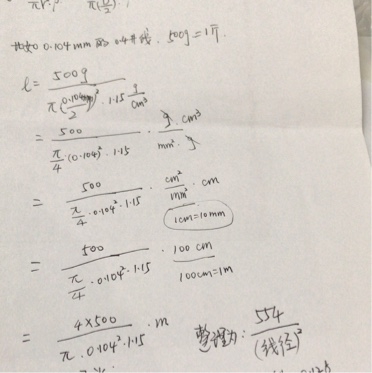 比如 0.104mm 的 0.4#线. 500g = 1斤.
l = 500g / π(0.104mm/2)² · 1.15 g/cm³
= 500 / π/4 · (0.104)² · 1.15 · g · cm³ / mm² · g
= 500 / π/4 · 0.104² · 1.15 · cm²/mm² · cm
1cm = 10mm
= 500 / π/4 · 0.104² · 1.15 · 100 cm
100cm = 1m
= 4×500 / π · 0.104² · 1.15 · m 整理为: 554 / (线径)²